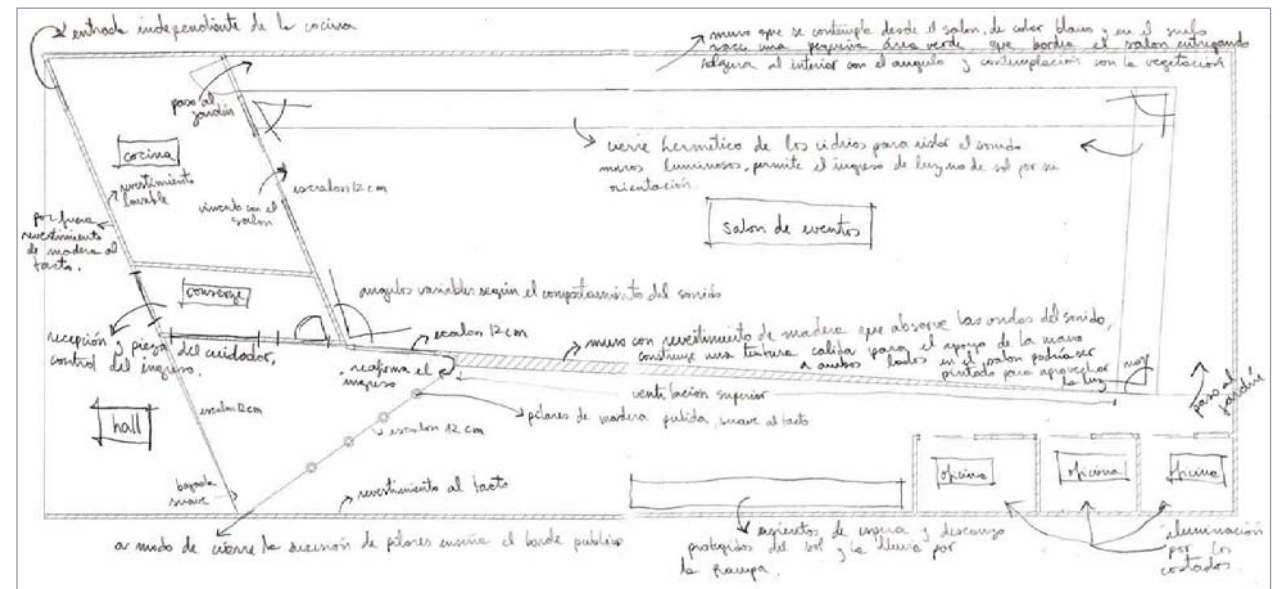 entrada independiente de la cocina
muro que se contempla desde el salon, de color blanco y en el suelo
nace una pequeña área verde que bordea el salon entregando
holgura al interior con el angulo y contemplación con la vegetación
paso al
jardín
cocina
revestimiento
lavable
por fuera
revestimiento
de madera al
tacto.
vinculo con el
salon
escalon 12 cm
cierre hermetico de los vidrios para aislar el sonido
muros luminosos, permite el ingreso de luz, no de sol por su
orientación
salon de eventos
conserge
angulos variables según el comportamiento del sonido
recepción y pieza del cuidador,
control del ingreso.
escalon 12 cm
reafirma el
ingreso
muro con revestimiento de madera que absorve las ondas del sonido,
construye una textura calida para el apoyo de la mano
a ambos lados en el salon podria ser
pintado para aprovechar
la luz
ventilacion superior
paso al
jardín
hall
escalon 12 cm
pilares de madera pulida, suave al tacto
escalon 12 cm
bajada
suave
revestimiento al tacto
oficina
oficina
oficina
a modo de cierre la sucesión de pilares enseña el borde publico
asientos de espera y descanzo
protegidos del sol y la lluvia por
la rampa.
iluminación
por los
costados